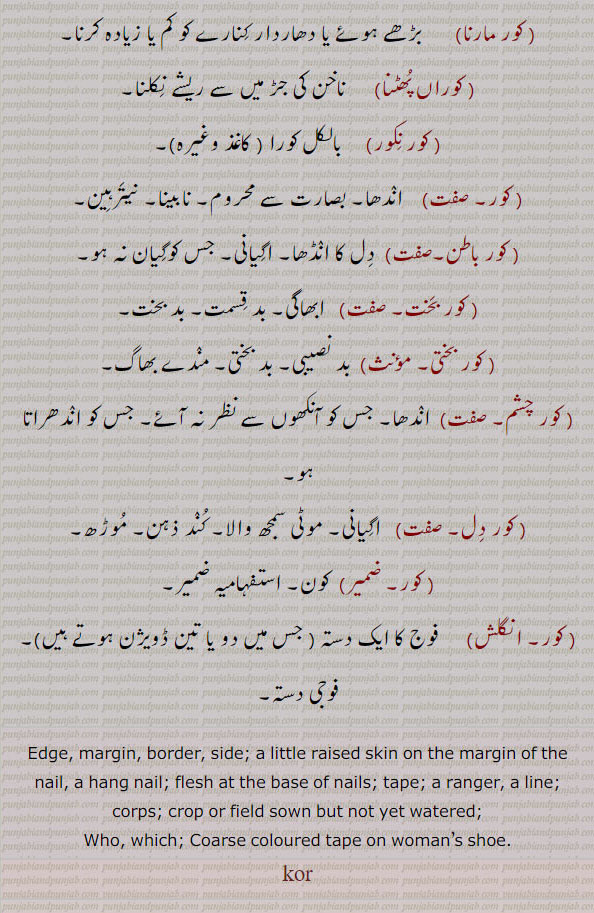 (کور مارنا) بڑھے ہوئے یا دھاردار کِنارے کو کم یا زیادہ کرنا۔
(کوراں پُھٹنا) ناخن کی جڑ میں سے ریشے نِکلنا۔
(کور نِکور) بالکل کورا (کاغذ وغیرہ)۔
(کور۔ صفت) انْدھا۔ بصارت سے محروم۔ نابینا۔ نیتَرہِین۔
(کور باطن۔صفت) دِل کا انْڈھا۔ اگِیانی۔ جس کوگِیان نہ ہو۔
(کور بخَت۔ صفت) ابھاگی۔ بد قِسمت۔ بد بخت۔
(کور بختی۔ مؤنث) بد نصیبی۔ بد بختی۔ منْدے بھاگ۔
(کور چشم۔ صفت) انْدھا۔ جس کو آنکھوں سے نظر نہ آئے۔ جس کو انْدھراتا
ہو۔
(کور دِل۔ صفت) اگِیانی۔ موٹی سمجھ والا۔ کُنْد ذہن۔ مُوڑھ۔
(کور۔ ضمیر) کون۔ استفہامیہ ضمیر۔
(کور۔ انگلش) فوج کا ایک دستہ (جس میں دو یا تین ڈویژن ہوتے ہیں)۔
فوجی دستہ۔
Edge, margin, border, side; a little raised skin on the margin of the
nail, a hang nail; flesh at the base of nails; tape; a ranger, a line;
corps; crop or field sown but not yet watered;
Who, which; Coarse coloured tape on woman's shoe.
kor